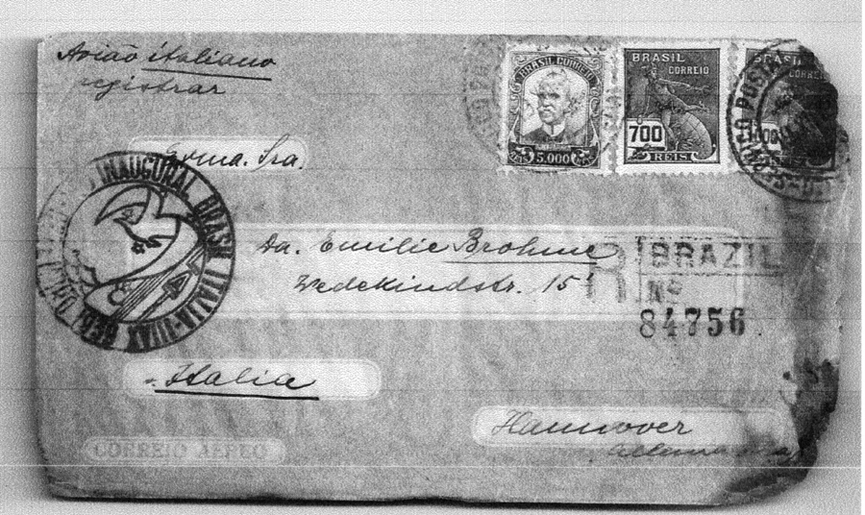 Avião italiano
registrar
BRASIL CORREIO
5.000
BRASIL
CORREIO
700
REIS
BRASIL
CORREIO
Exma. Sra.
INAUGURAL BRASIL ITALIA
Da. Emilie Brohme
Wedekindstr. 15
R
BRAZIL
Nº
84756
Italia
Hannover
CORREIO AEREO